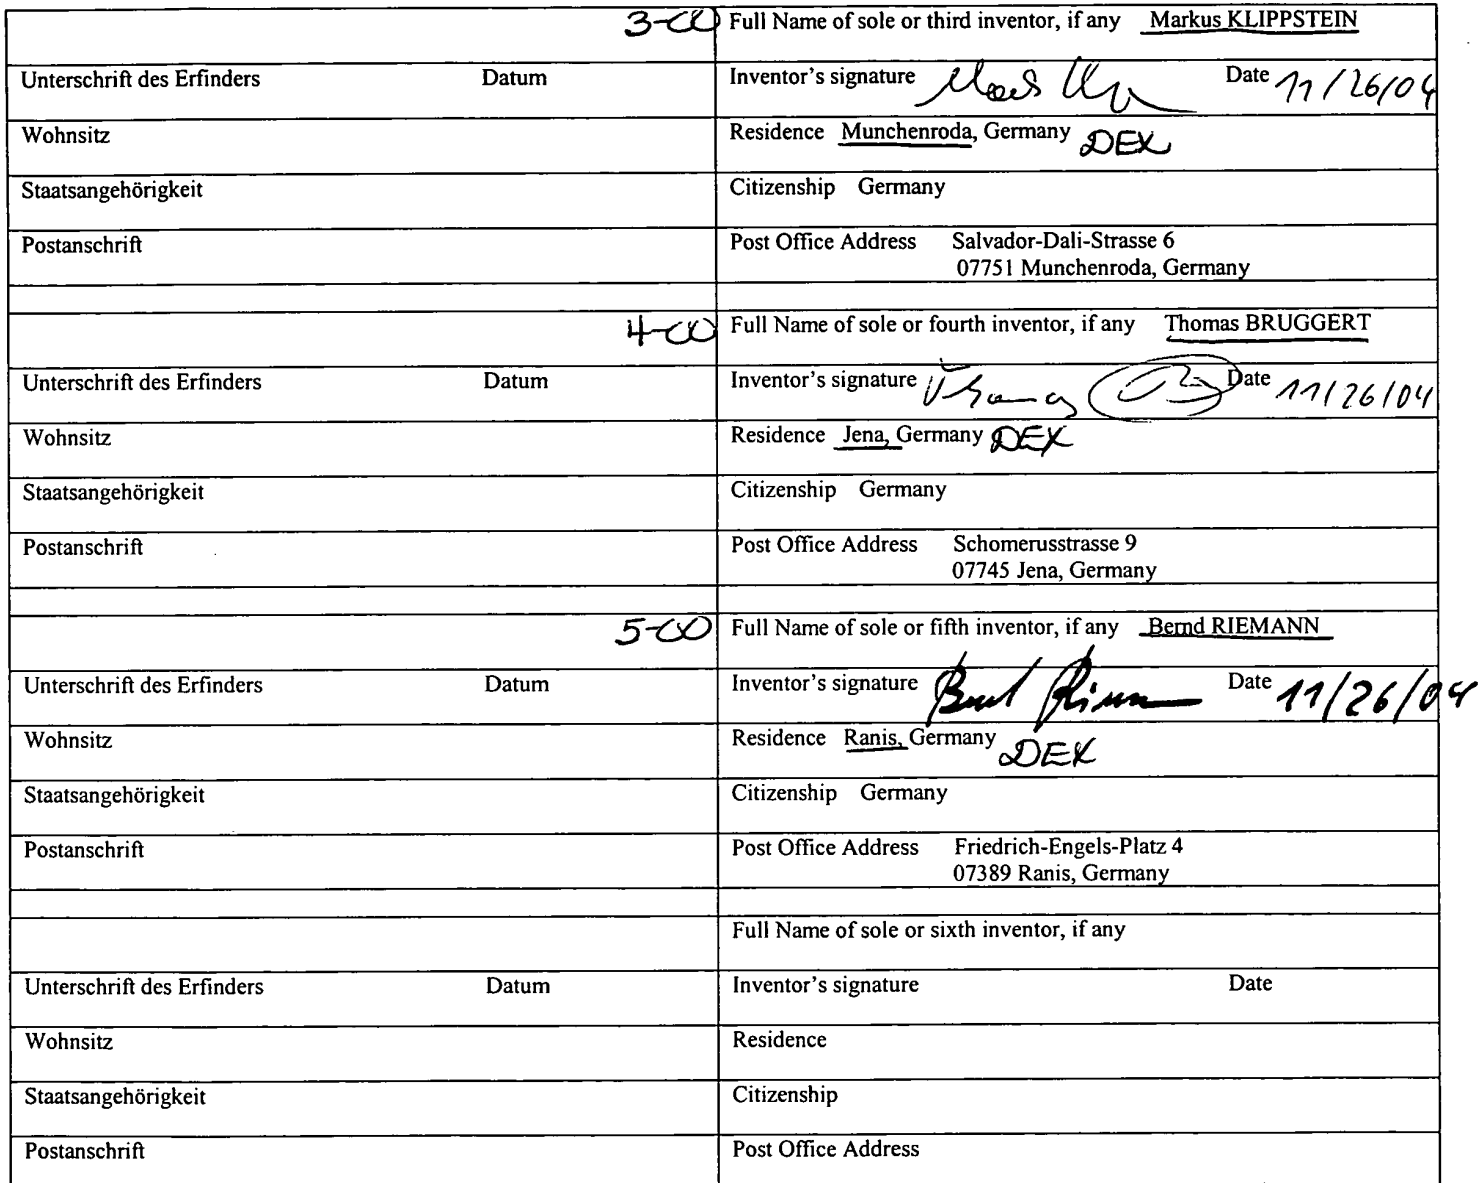 3-00 Full Name of sole or third inventor, if any Markus KLIPPSTEIN
Unterschrift des Erfinders Datum Inventor's signature Date 11/26/04
Wohnsitz Residence Munchenroda, Germany DEX
Staatsangehörigkeit Citizenship Germany
Postanschrift Post Office Address Salvador-Dali-Strasse 6
07751 Munchenroda, Germany
4-00 Full Name of sole or fourth inventor, if any Thomas BRUGGERT
Unterschrift des Erfinders Datum Inventor's signature Thomas Date 11/26/04
Wohnsitz Residence Jena, Germany DEX
Staatsangehörigkeit Citizenship Germany
Postanschrift Post Office Address Schomerusstrasse 9
07745 Jena, Germany
5-00 Full Name of sole or fifth inventor, if any Bernd RIEMANN
Unterschrift des Erfinders Datum Inventor's signature Bernd Riemann Date 11/26/04
Wohnsitz Residence Ranis, Germany DEX
Staatsangehörigkeit Citizenship Germany
Postanschrift Post Office Address Friedrich-Engels-Platz 4
07389 Ranis, Germany
Full Name of sole or sixth inventor, if any
Unterschrift des Erfinders Datum Inventor's signature Date
Wohnsitz Residence
Staatsangehörigkeit Citizenship
Postanschrift Post Office Address